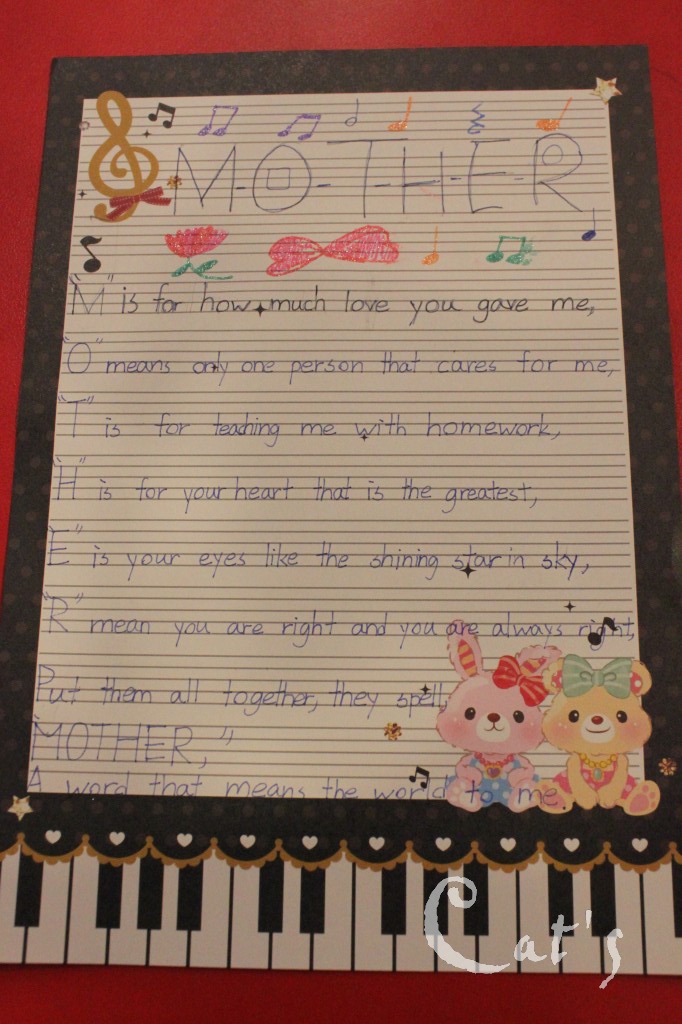 M-O-T-H-E-R
"M" is for how much love you gave me,
"O" means only one person that cares for me,
"T" is for teaching me with homework,
"H" is for your heart that is the greatest,
"E" is your eyes like the shining star in sky,
"R" mean you are right and you are always right,
Put them all together, they spell,
MOTHER,"
A word that means the world to me.
Cat's